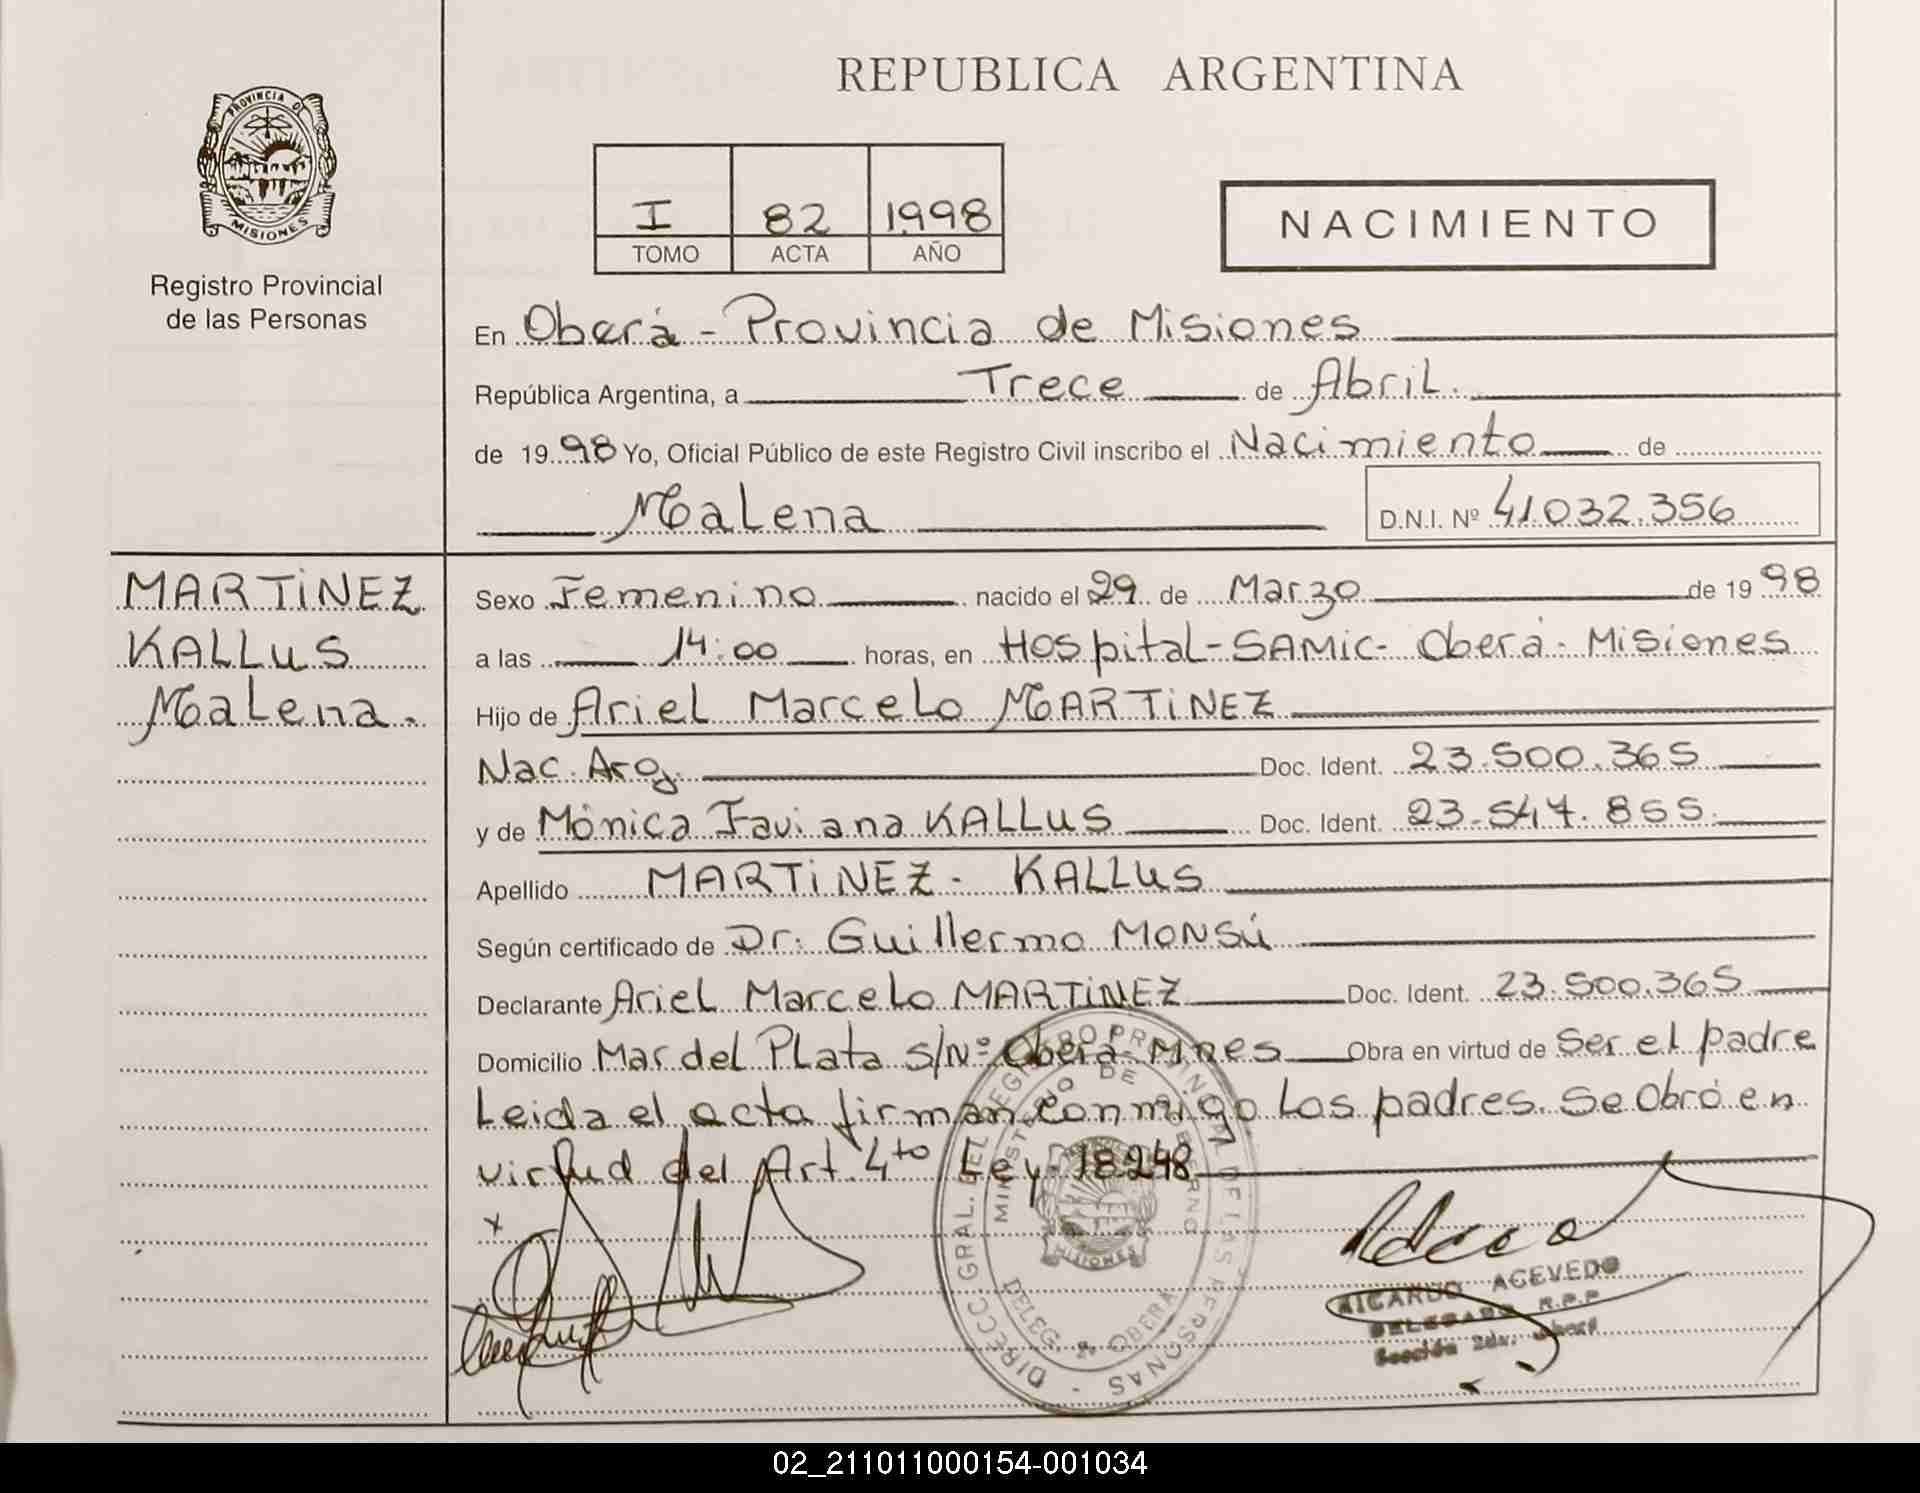 REPUBLICA ARGENTINA
PROVINCIA DE
MISIONES
Registro Provincial
de las Personas
I 82 1.998
TOMO ACTA AÑO
NACIMIENTO
En Oberá - Provincia de Misiones
República Argentina, a Trece de Abril.
de 19 98 Yo, Oficial Público de este Registro Civil inscribo el Nacimiento de
Malena D.N.I. Nº 41.032.356
MARTiNEZ
KALLUS
Malena.
Sexo Femenino nacido el 29 de Marzo de 19 98
a las 14:00 horas, en Hospital-SAMIC- Oberá- Misiones
Hijo de Ariel Marcelo MARTiNEZ
Nac. Arg. Doc. Ident. 23.500.365
y de Mónica Faviana KALLUS Doc. Ident. 23.547.855.
Apellido MARTiNEZ - KALLUS
Según certificado de Dr. Guillermo MONSÚ
Declarante Ariel Marcelo MARTiNEZ Doc. Ident. 23.500.365
Domicilio Mar del Plata s/Nº Oberá-Mnes Obra en virtud de Ser el padre
Leida el acta firman conmigo los padres. Se Obró en
virtud del Art. 4to Ley 18248
x
DIRECC. GRAL. DEL REGISTRO PROVINCIAL DE LAS PERSONAS -
MINISTERIO DE GOBIERNO
MISIONES
DELEG. OBERA
RICARDO ACEVEDO
DELEGADO R.P.P
Sección 2da. Oberá
02_211011000154-001034